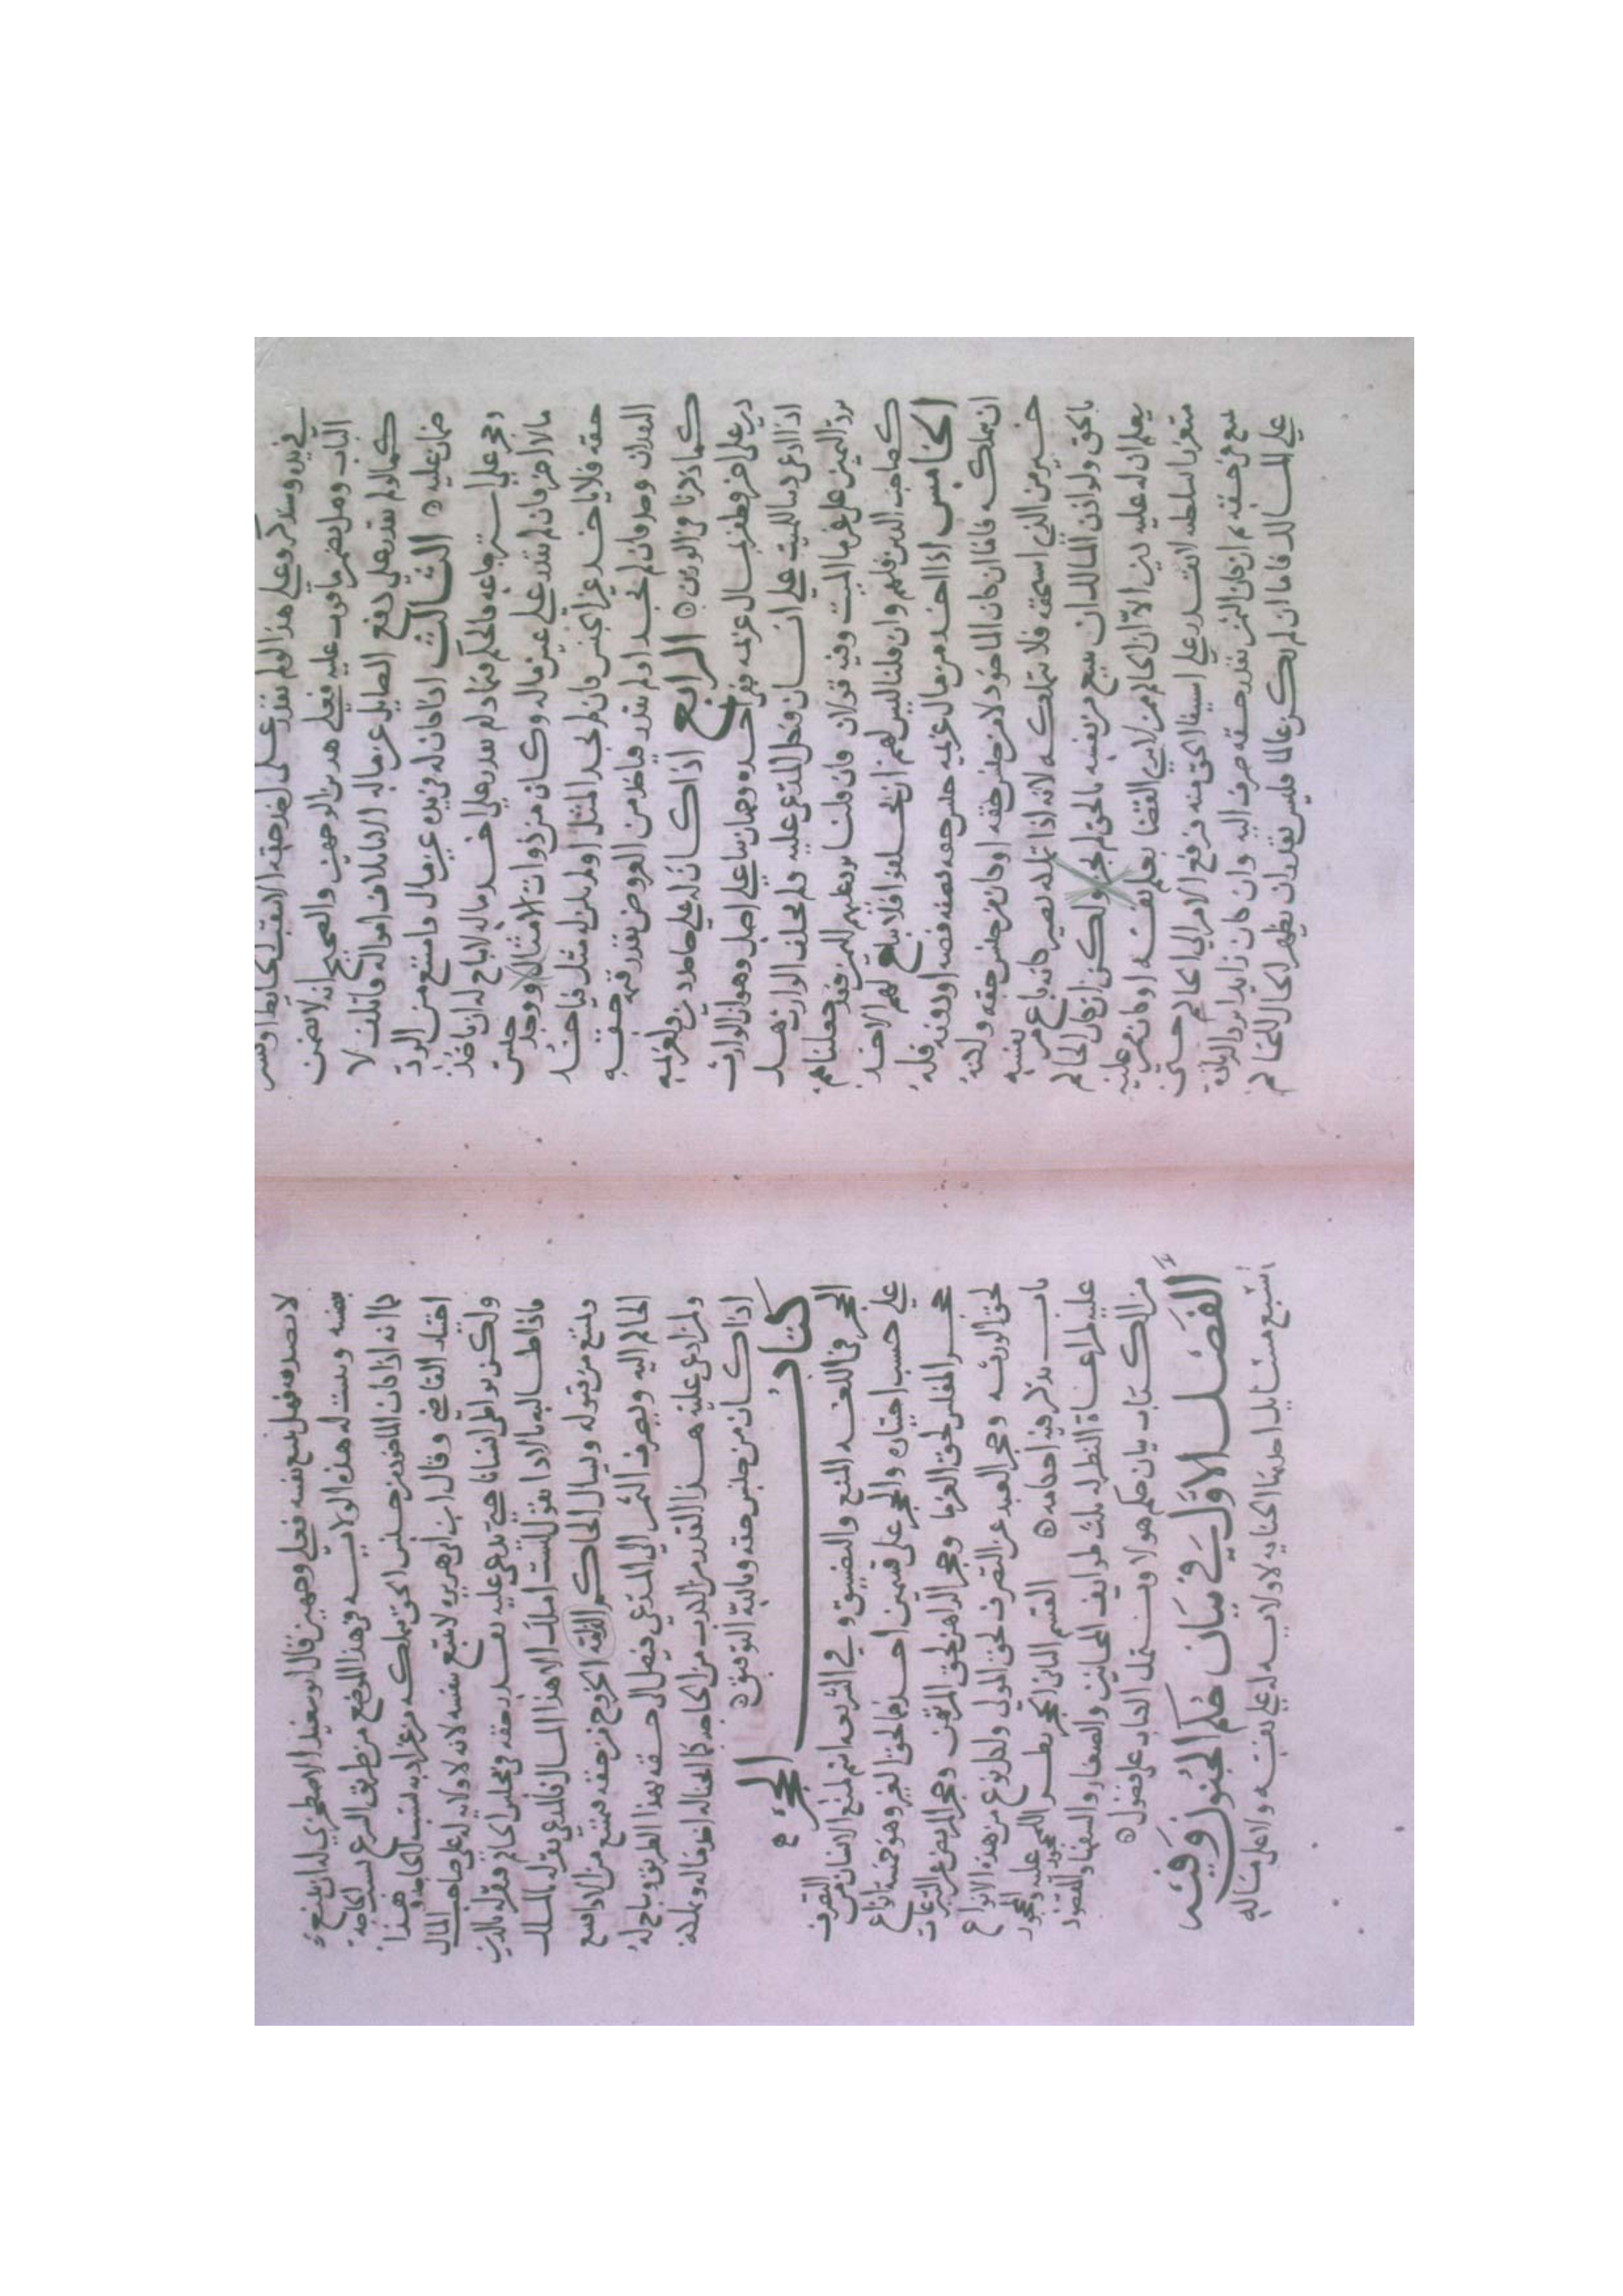 في يده وسنذكر وعلى هذا لو لم يقدر على اخذ حقه الا بنقب الحايط او كسر
الباب وهل يضمن ما فوت عليه فعلى هذين الوجهين والصحيح انه لا يضمن
كما لو لم يقدر على دفع الصايل عن ماله الا باتلاف امواله فاتلف لا
ضمان عليه الثالث اذا كان له في يده عين مال وامتنع من الرد
وعجز على استرجاعه فالحكم فيما لم يقدر على اخذ ماله لا يباح له ان ياخذ
مالا اخر فان لم يقدر على عين ماله وكان من ذوات الامثال ووجد جنس
حقه فلا ياخذ غير الجنس فان لم يجد المثل او لم يكن له مثل فياخذ
النقدان وجد فان لم يجد او لم يقدر فياخذ من العروض بقدر قيمة حقه
كما ذكرنا في الدين الرابع اذا كان له على جاحد دين ولغريمه
دين على اخر وظفر بمال غريم غريمه وهما بنا على اصل وهو ان الوارث
اذا ادعى دينا للميت على انسان ونكل المدعى عليه ولم يحلف الوارث هل
يرد اليمين على غرما الميت وفيه قولان فان قلنا يرد عليهم اليمين فقد جعلناهم
كصاحب الدين فلهم وان قلنا ليس لهم ان يحلفوا فلا يباح لهم الاخذ
الخامس اذا اخذ من مال غريمه جنس حقه بصفته او دونه فله
ان يتملكه فاما ان كان الماخوذ لا من جنس حقه او كان من جنس حقه ولكنه
خير من الذي استحقه فلا يتملكه لانه اذا تملكه يصير كانه باع من نفسه
بالحق ولو اذن المالك ان يبيع من نفسه بالحق لم يجز ولكن ان كان الحاكم
يعلم ان له عليه دين الا ان الحاكم ممن لا يرى القضا بعلم نفسه او كان من عليه
متعززا بسلطنة لا يقدر على استيفا الحق منه فرفع الامر الى الحاكم حتى
يبيع عن حقه ثم ان كان الثمن بقدر حقه صرف اليه وان كان زايدا يرد الزيادة
على المالك فاما ان لم يكن عالما فليس يقدر ان يظهر الحال للحاكم
لا يصدقه فهل يبيع بنفسه فعلى وجهين قال ابو سعيد الاصطخري له ان يبيع
بنفسه ويثبت له هذه الولاية في هذا الموضع من طريق الشرع بسبب الحاجة
كما انه اذا كان الماخوذ من جنس الحق يتملكه من غير اذنه لسبب الحاجة وهذا
اختيار القاضي وقال ابن ابي هريرة لا يبيع بنفسه لانه لا ولاية له على صاحب المال
ولكن يواطي انسانا حتى يدعي عليه بقدر حقه في مجلس الحاكم فيقر له بالدين
فاذا طالبه بالادا يقول ليست املك الا هذا المال فالمدعي يقر له بالملك
ويمتنع من قبوله ويسال الحاكم الخروج من حقه فيمتنع من الادا فيبيع
الحاكم اليه ويصرف الثمن الى المدعي فيصل الى حقه بهذا الطريق ويباح له
ولمن ادعى عليه هذا القدر من الكذب من الحاجة كما يباح له اخذ ماله وتملكه
اذا كان من جنس حقه وبالله التوفيق
كتاب الحجر
الحجر في اللغة المنع والتضييق وفي الشريعة اسم لمنع الانسان من التصرف
على حسب اختياره والحجر على قسمين احدهما لحق الغير وهو خمسة انواع
حجر المفلس لحق الغرما وحجر الراهن لحق المرتهن وحجر المريض عن التبرعات
لحق الورثة وحجر العبد عن التصرف لحق المولى ولكل نوع من هذه الانواع
باب نذكر فيه احكامه القسم الثاني الحجر بطريق النظر للمحجور عليه والمحجور
عليه لمراعاة النظر له ثلاث طوايف المجانين والصغار والسفها والمقصود
من الكتاب بيان حكم هولا ويشتمل الكتاب على فصول
الفصل الاول في بيان حكم الجنون وفيه
اربع مسايل احدها المجنون لا ولاية له على نفسه ولا على ماله